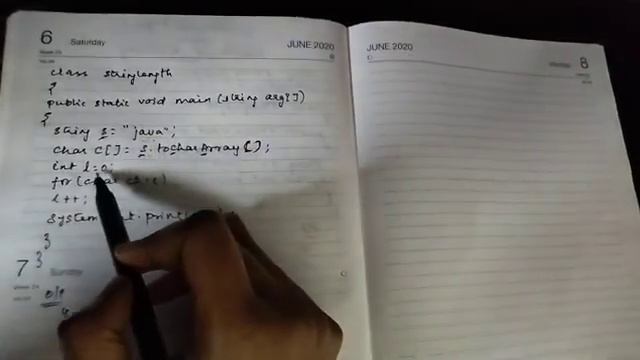 6 Saturday JUNE 2020
class stringlength
{
public static void main(string arg[])
{
string s= "java";
char c[]= s.tocharArray();
int l=0;
for(char
l++;
system
}
}
7 Sunday
o/p
JUNE 2020
8